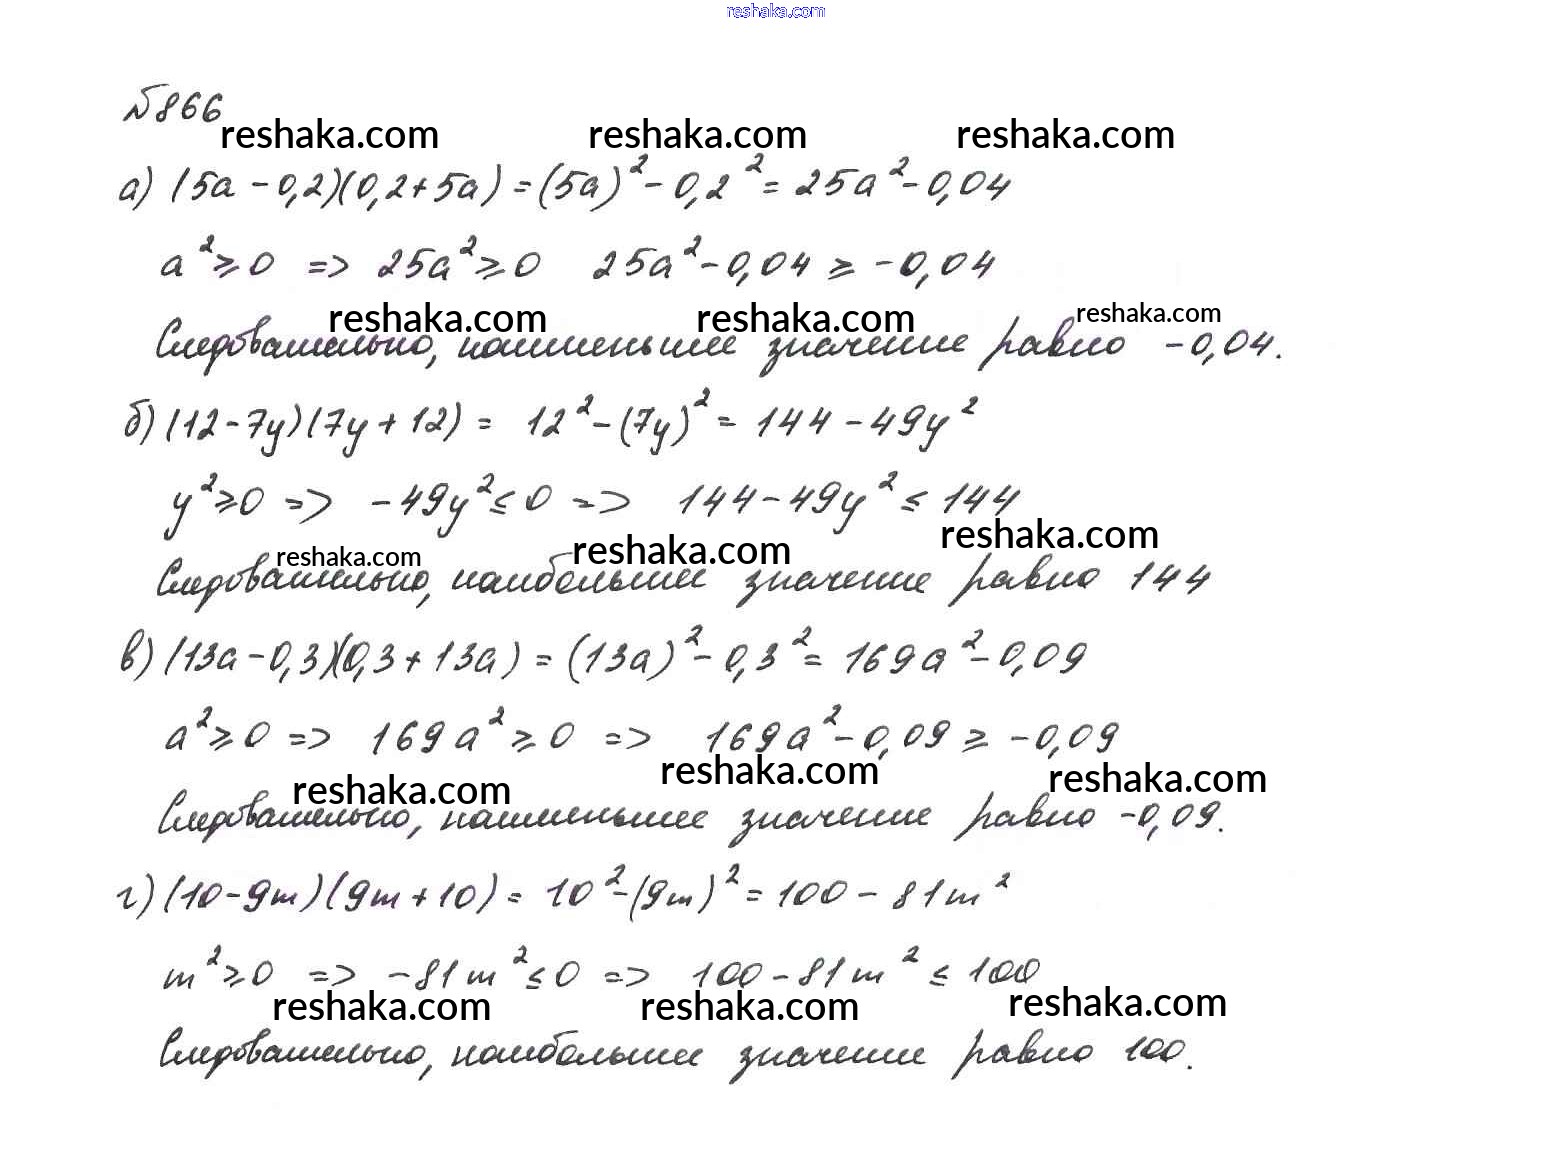 reshaka.com
№866
reshaka.com reshaka.com reshaka.com
а) (5a - 0,2)(0,2 + 5a) = (5a)² - 0,2² = 25a² - 0,04
a² ⩾ 0 => 25a² ⩾ 0 25a² - 0,04 ⩾ -0,04
reshaka.com reshaka.com reshaka.com
Следовательно, наименьшее значение равно -0,04.
б) (12 - 7y)(7y + 12) = 12² - (7y)² = 144 - 49y²
y² ⩾ 0 => -49y² ≤ 0 => 144 - 49y² ≤ 144
reshaka.com reshaka.com reshaka.com
Следовательно, наибольшее значение равно 144
в) (13a - 0,3)(0,3 + 13a) = (13a)² - 0,3² = 169a² - 0,09
a² ⩾ 0 => 169a² ⩾ 0 => 169a² - 0,09 ⩾ -0,09
reshaka.com reshaka.com reshaka.com
Следовательно, наименьшее значение равно -0,09.
г) (10 - 9m)(9m + 10) = 10² - (9m)² = 100 - 81m²
m² ⩾ 0 => -81m² ≤ 0 => 100 - 81m² ≤ 100
reshaka.com reshaka.com reshaka.com
Следовательно, наибольшее значение равно 100.